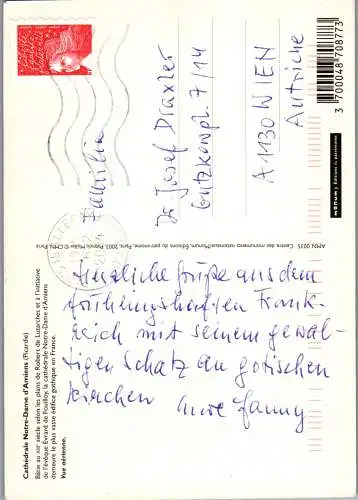 Cathédrale Notre-Dame d'Amiens (Picardie)
Bâtie au XIIIᵉ siècle selon les plans de Robert de Luzarches et à l'initiative
de l'évêque Evrard de Fouilloy, la cathédrale Notre-Dame d'Amiens
demeure le plus vaste édifice gothique en France.
Vue aérienne.
Herzliche Grüße aus dem
frühlingshaften Frank-
reich mit seinem gewal-
tigen Schatz an gotischen
Kirchen Eure Fanny
AMN 0035 Centre des monuments nationaux/Monum, Éditions du patrimoine, Paris, 2003. Patrick Müller © CMN, Paris
Familie
Dr Josef Draxler
Gutzkowpl. 7/14
A1130 WIEN
Autriche
monum, Éditions du patrimoine
3 700048 708773